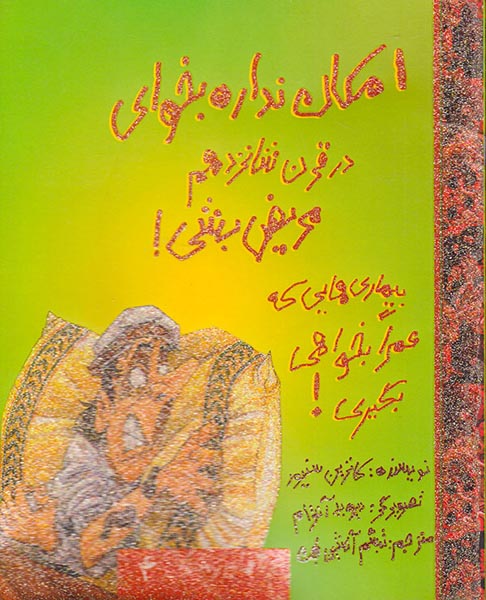 امکان نداره بخوای
در قرن شانزدهم
مریض بشی!
بیماری‌هایی که
عمراً بخواهی
بگیری!
نویسنده: کاترین سنیور
تصویرگر: دیوید آنترام
مترجم: